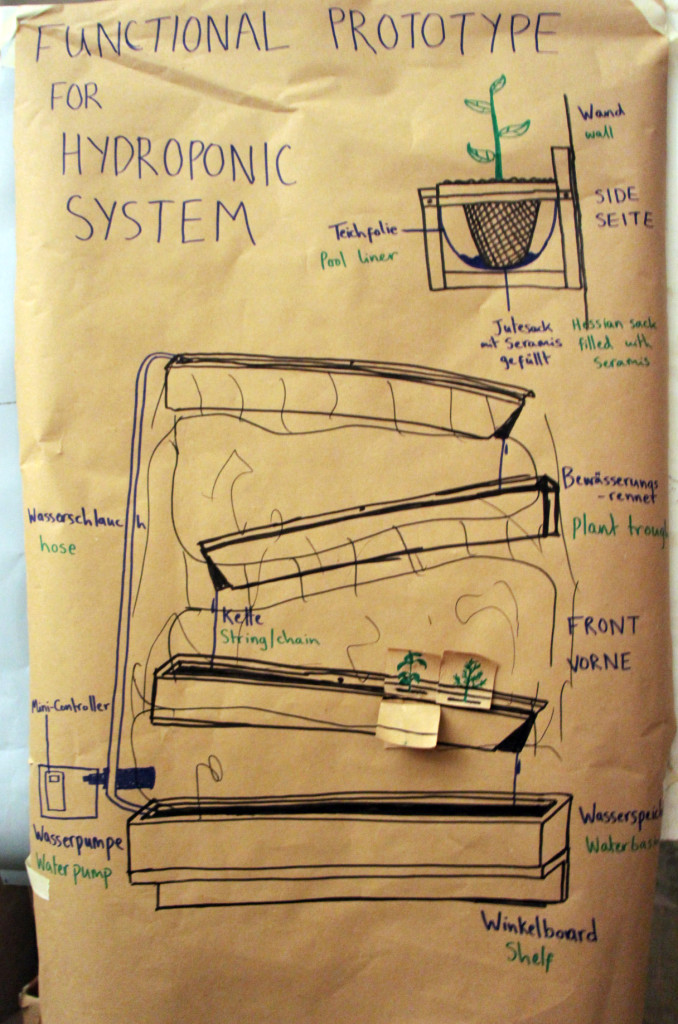 FUNCTIONAL PROTOTYPE
FOR
HYDROPONIC
SYSTEM
Wand
wall
SIDE
SEITE
Teichfolie
Pool liner
Jutesack
mit Seramis
gefüllt
Hessian sack
filled with
Seramis
Bewässerungs
-rennet
plant trough
Wasserschlauch
hose
Kette
String/chain
FRONT
VORNE
Mini-Controller
Wasserpumpe
Water pump
Winkelboard
Shelf